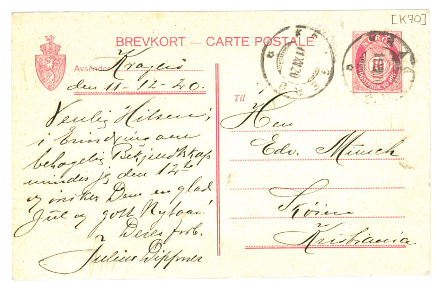 [K70]
BREVKORT – CARTE POSTALE
Afsender: Kragerø
den 11-12-20.
Venlig Hilsen;
i Erindring om
behagelig Bekjendtskap
mindes jeg den 12te
og ønsker Dem en glad
Jul og godt Nytaar!
Deres forb.
Julius
Til
Herr
Edv. Munch
Skøien
Kristiania.
10